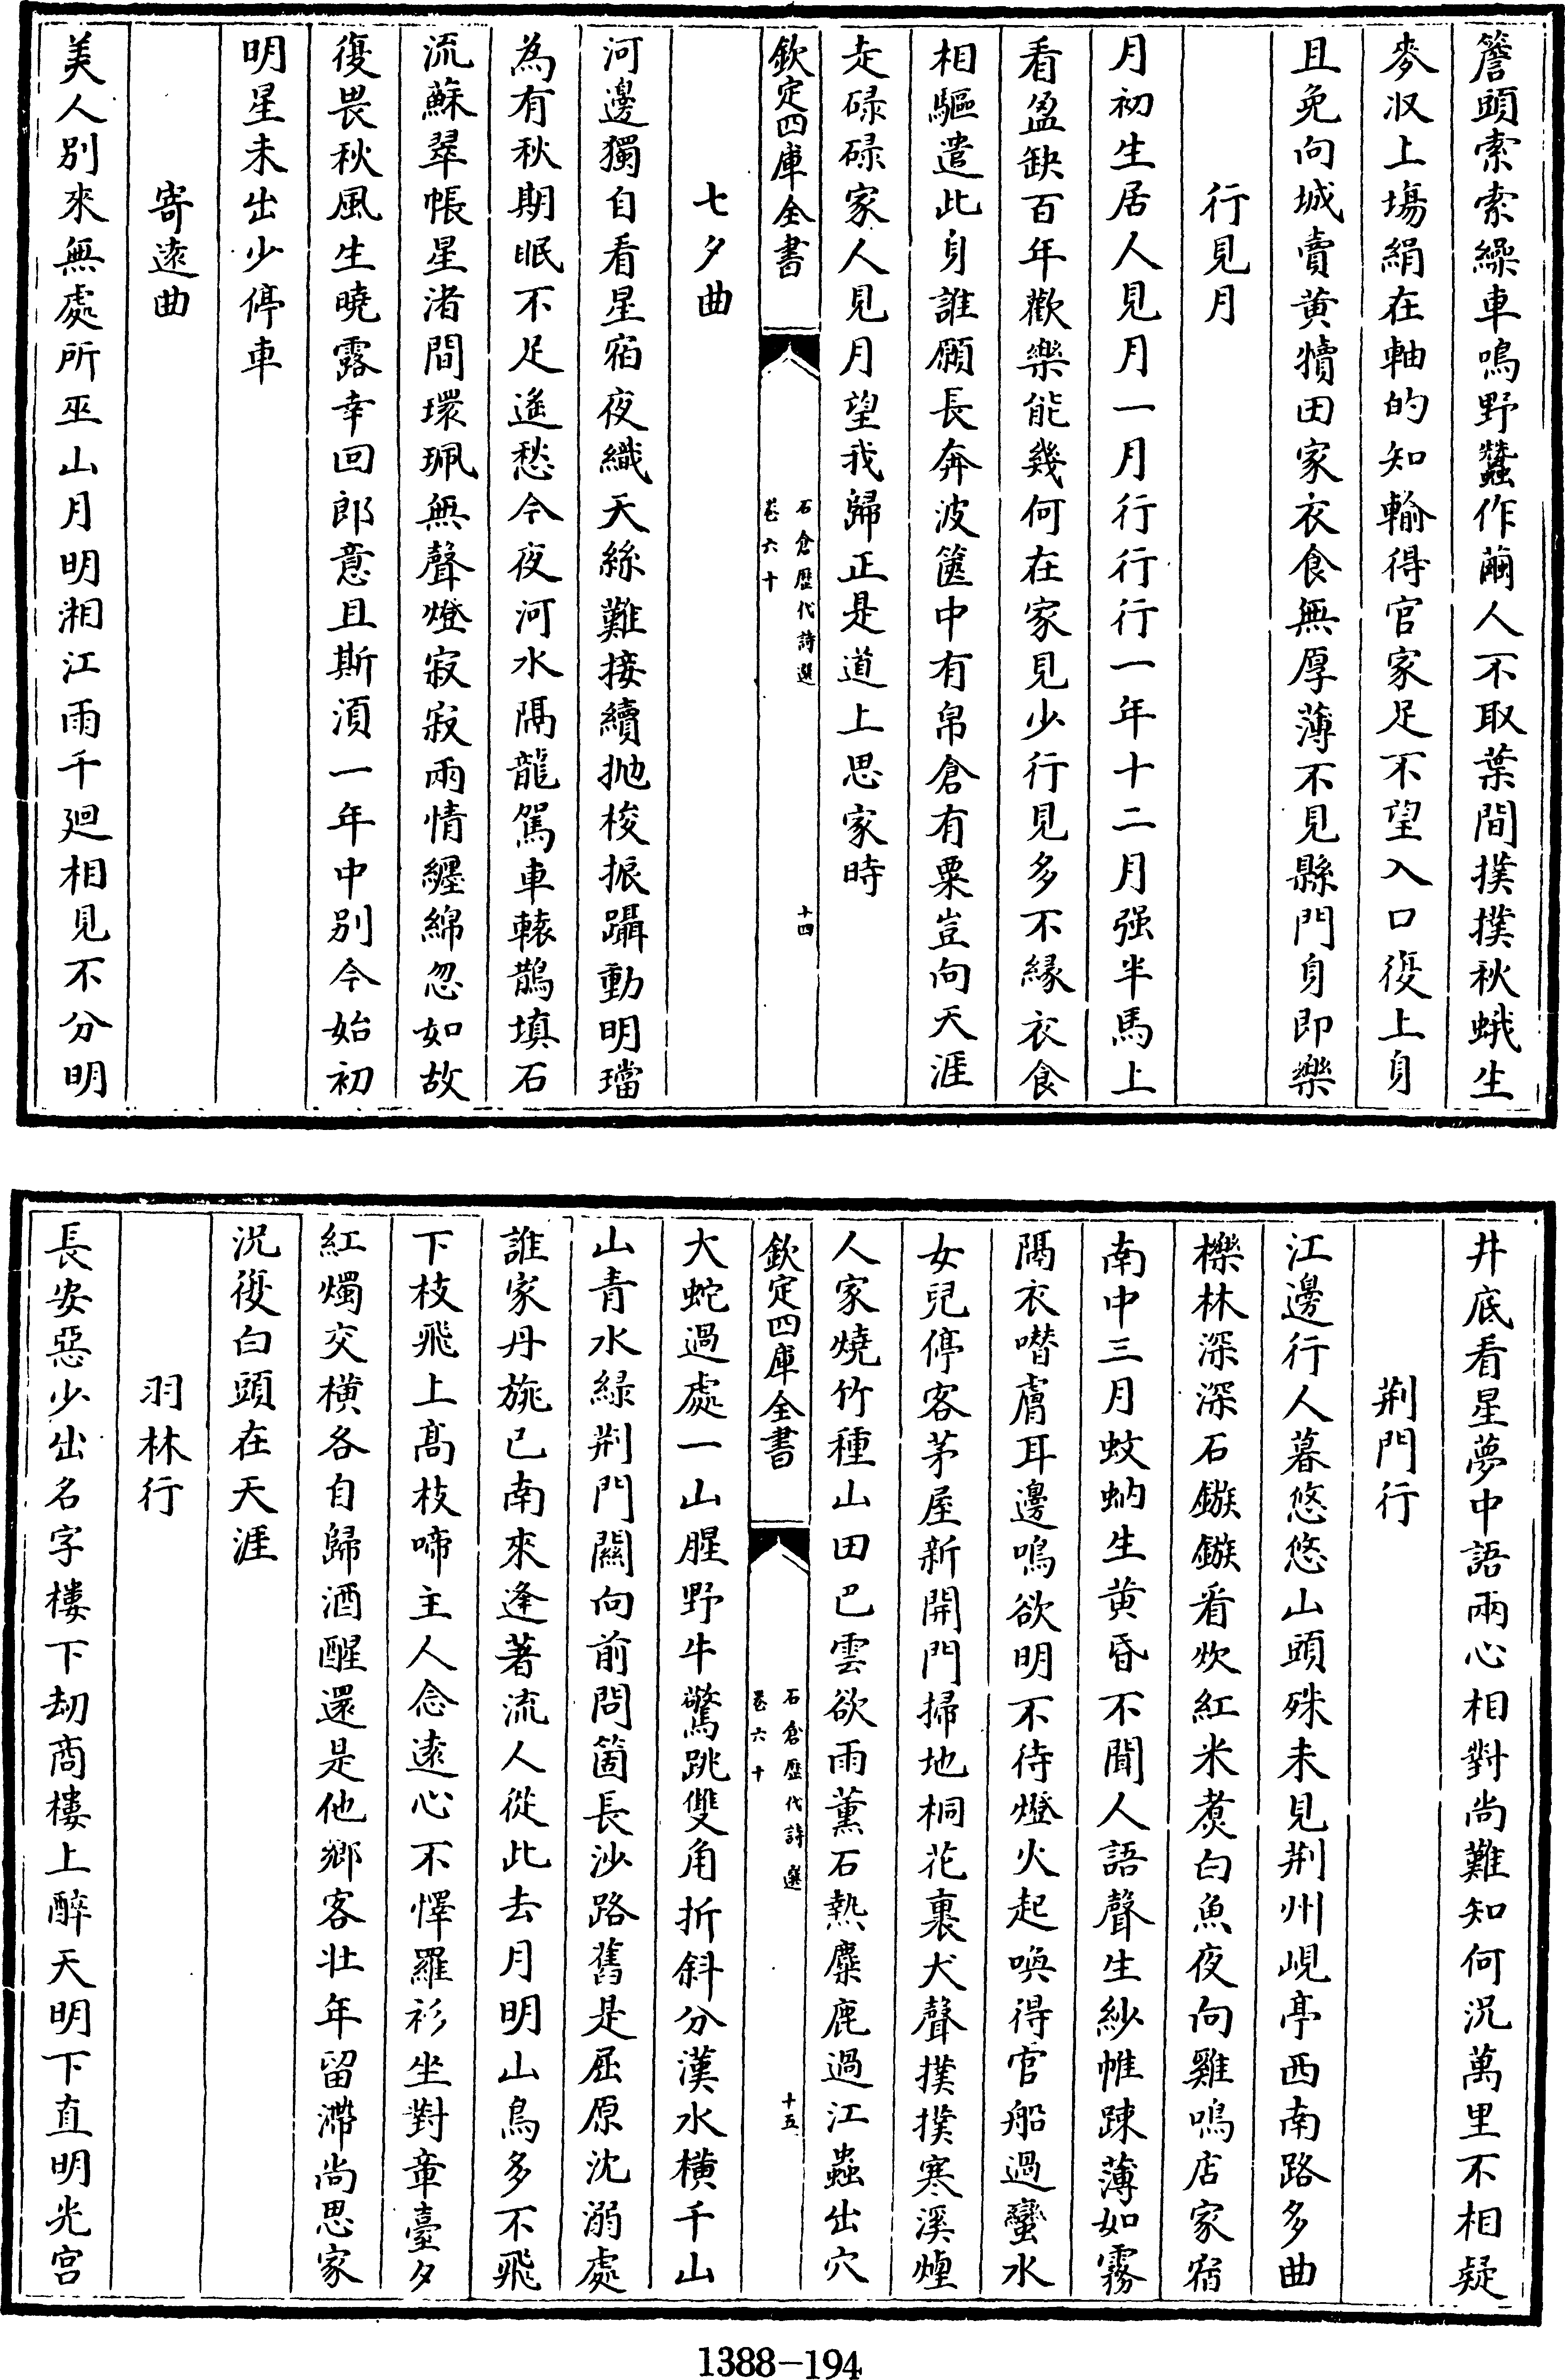 簷頭索索繰車鳴野蠶作繭人不取葉間撲撲秋蛾生
麥收上場絹在軸的知輸得官家足不望入口復上身
且免向城賣黄犢田家衣食無厚薄不見縣門身即樂
行見月
月初生居人見月一月行行行一年十二月强半馬上
看盈缺百年歡樂能幾何在家見少行見多不緣衣食
相驅遣此身誰願長奔波篋中有帛倉有粟豈向天涯
走碌碌家人見月望我歸正是道上思家時
欽定四庫全書
石倉歴代詩選
卷六十
十四
七夕曲
河邊獨自看星宿夜織天絲難接續抛梭振躡動明璫
為有秋期眠不足遙愁今夜河水隔龍駕車轅鵲填石
流蘇翠帳星渚間環珮無聲燈寂寂兩情纏綿忽如故
復畏秋風生曉露幸回郎意且斯湏一年中别今始初
明星未出少停車
寄逺曲
美人别來無處所巫山月明湘江雨千廻相見不分明
井底看星夢中語兩心相對尚難知何況萬里不相疑
荆門行
江邊行人暮悠悠山頭殊未見荆州峴亭西南路多曲
櫟林深深石鏃鏃看炊紅米煑白魚夜向雞鳴店家宿
南中三月蚊蚋生黄昏不聞人語聲生紗帷踈薄如霧
隔衣噆膚耳邊鳴欲明不待燈火起喚得官船過蠻水
女兒停客茅屋新開門掃地桐花裏犬聲撲撲寒溪煙
人家燒竹種山田巴雲欲雨薰石熱麋鹿過江蟲出穴
欽定四庫全書
石倉歴代詩選
卷六十
十五
大蛇過處一山腥野牛驚跳雙角折斜分漢水横千山
山青水緑荆門關向前問箇長沙路舊是屈原沈溺處
誰家丹旐已南來逢著流人從此去月明山鳥多不飛
下枝飛上髙枝啼主人念逺心不懌羅衫坐對章臺夕
紅燭交横各自歸酒醒還是他鄉客壯年留滯尚思家
況復白頭在天涯
羽林行
長安惡少出名字樓下劫商樓上醉天明下直明光宫
1388-194